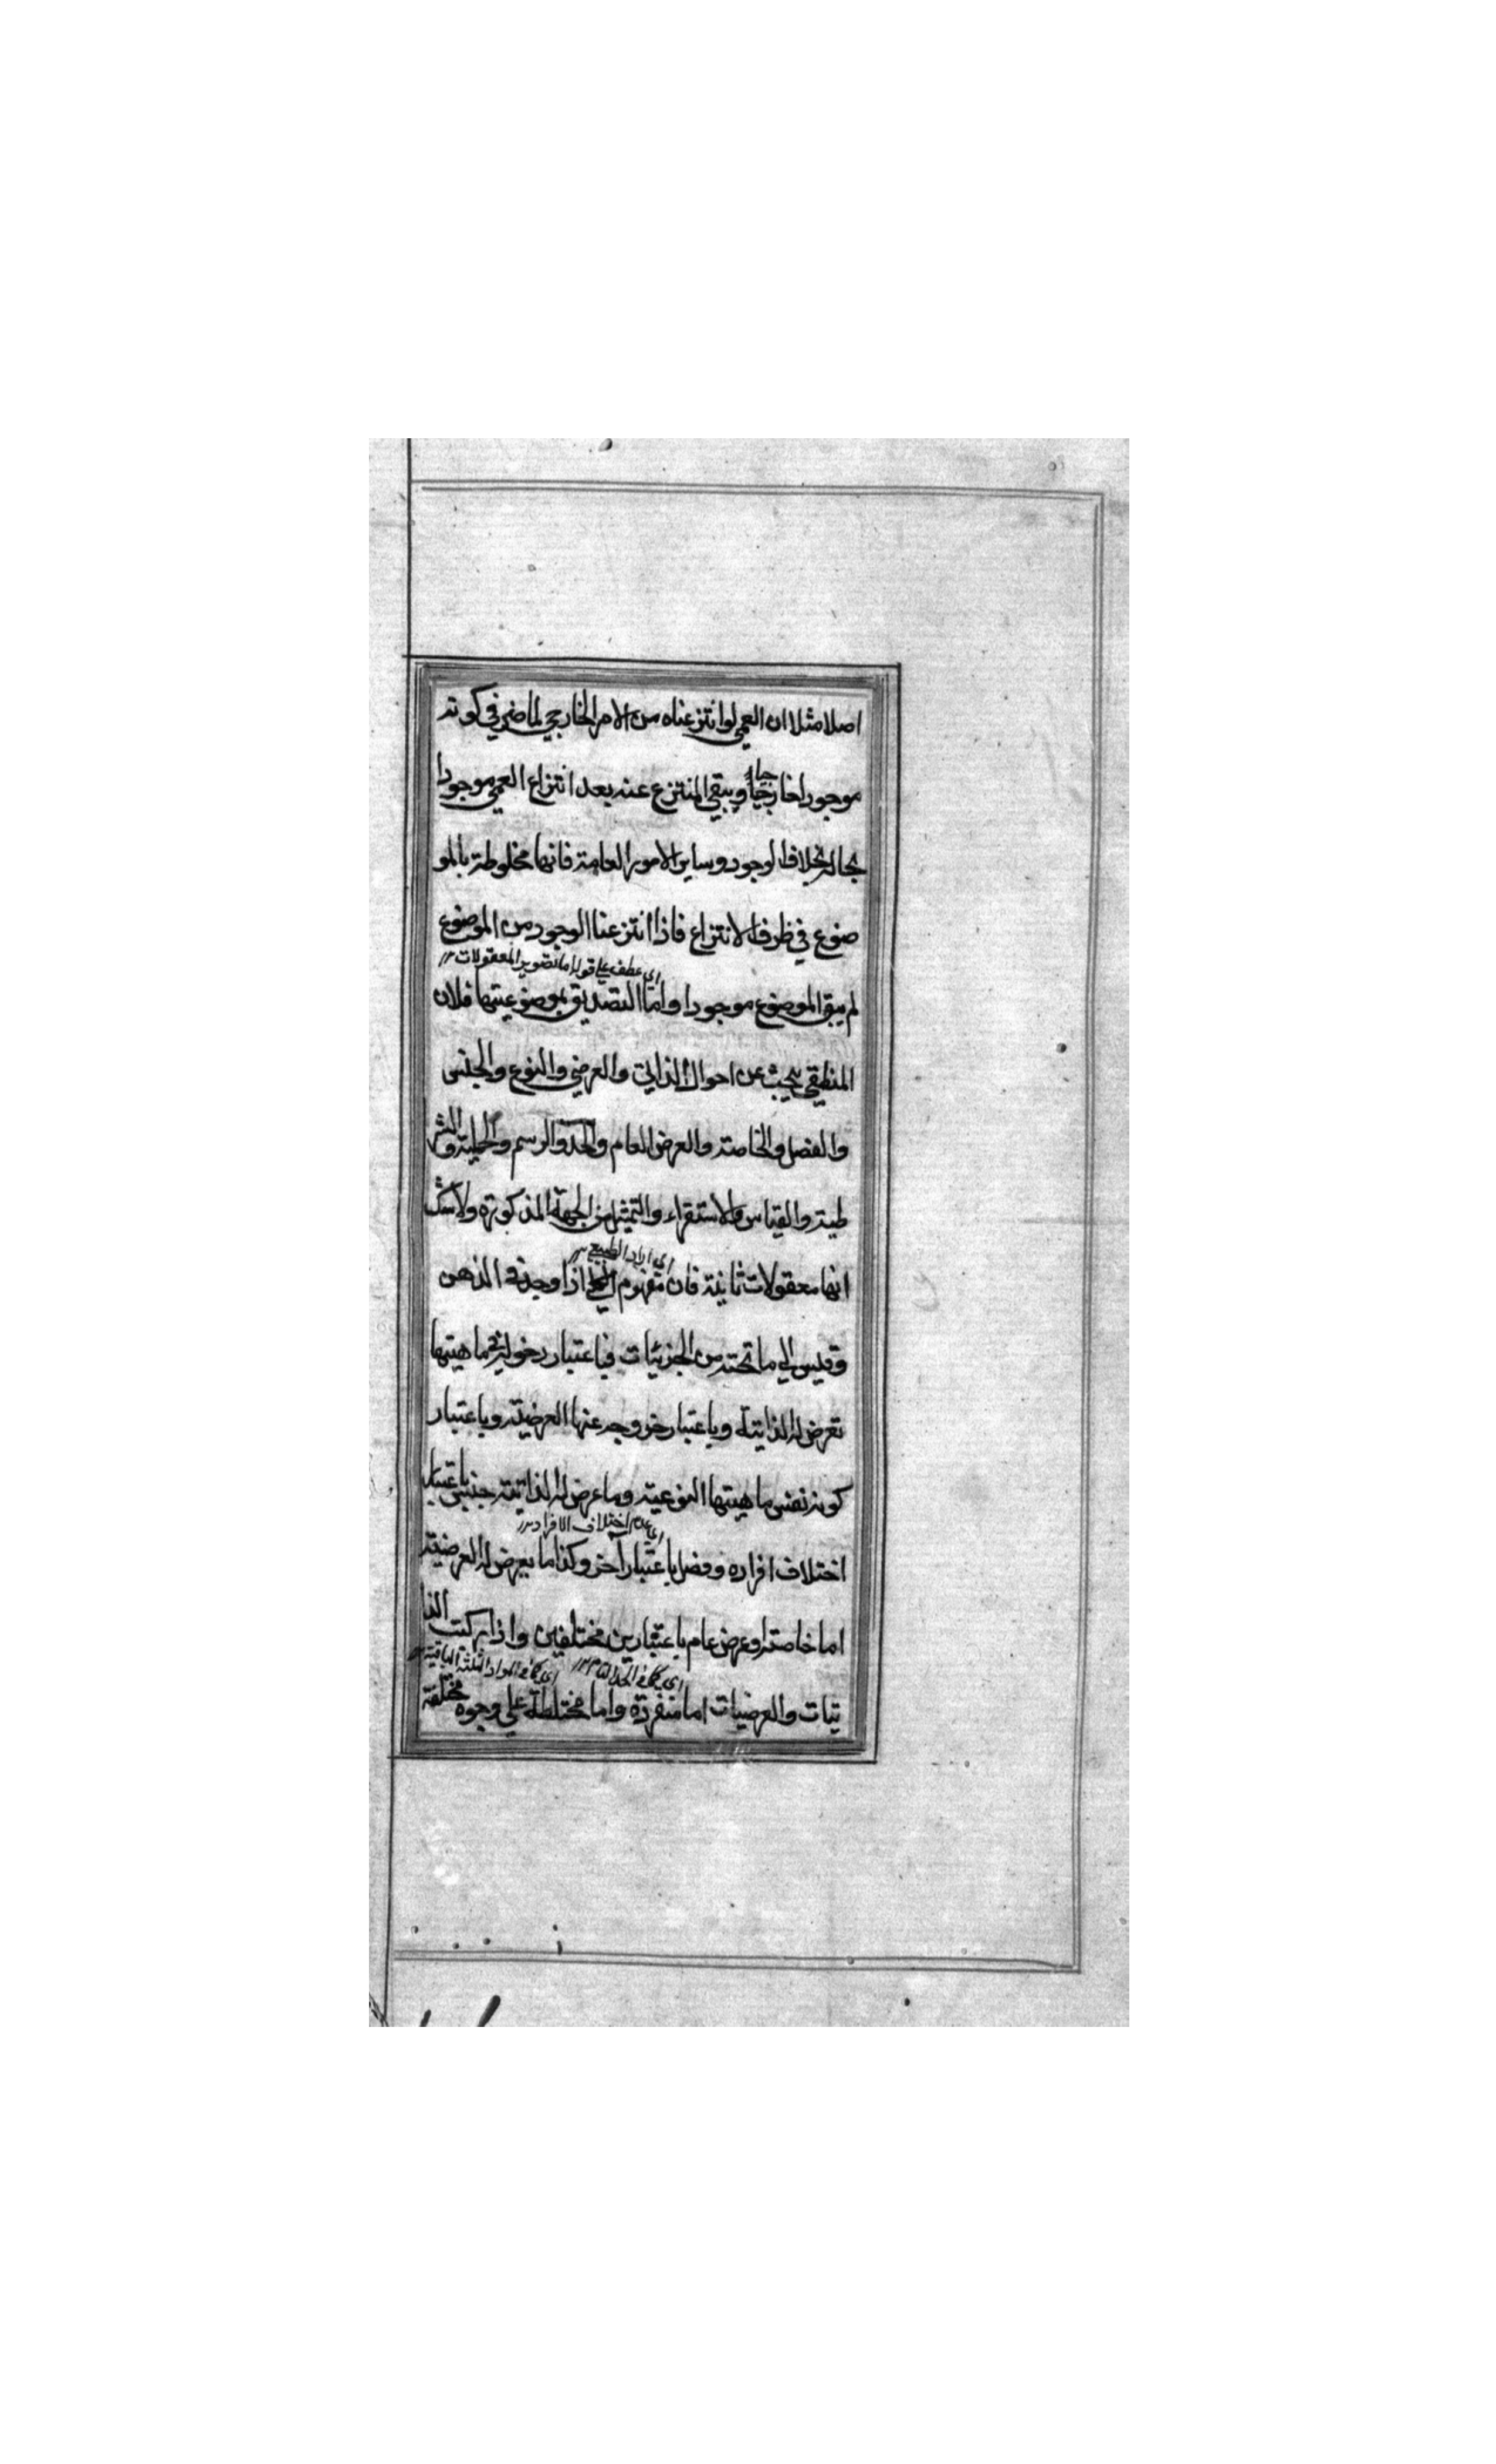 اصلا مثلا ان العمى لو انتزعناه من الامر الخارجي لما ضر في كونه
موجودا خارجيا ويبقى المنتزع عنه بعد انتزاع العمى موجودا
بحاله بخلاف الوجود وساير الامور العامة فانها مخلوطة بالمو
ضوع في ظرف الانتزاع فاذا انتزعنا الوجود من الموضوع
اي عطف على قوله اما تصوير المعقولات ١٢
لم يبق الموضوع موجودا واما التصديق بموضوعيتها فلان
المنطقي يبحث عن احوال الذاتي والعرضي والنوع والجنس
والفصل والخاصة والعرض العام والحد والرسم والحملية والشر
طية والقياس والاستقراء والتمثيل من الجهة المذكورة ولا شك
انها معقولات ثانية فان مفهوم الكلي اذا وجد في الذهن
وقيس الى ما تحته من الجزئيات فباعتبار دخوله في ماهيتها
تعرض له الذاتية وباعتبار خروجه عنها العرضية وباعتبار
كونه نفس ماهيتها النوعية وما عرض له الذاتية جنس باعتبار
اي عدم اختلاف الافراد ١٢
اختلاف افراده وفصل باعتبار آخر وكذا ما يعرض له العرضية
اما خاصة او عرض عام باعتبارين مختلفين واذا ركبت الذا
اي كما في الحد التام ١٢ اي كما في المواد الثلثة الباقية ١٢
تيات والعرضيات اما منفردة واما مختلطة على وجوه مختلفة